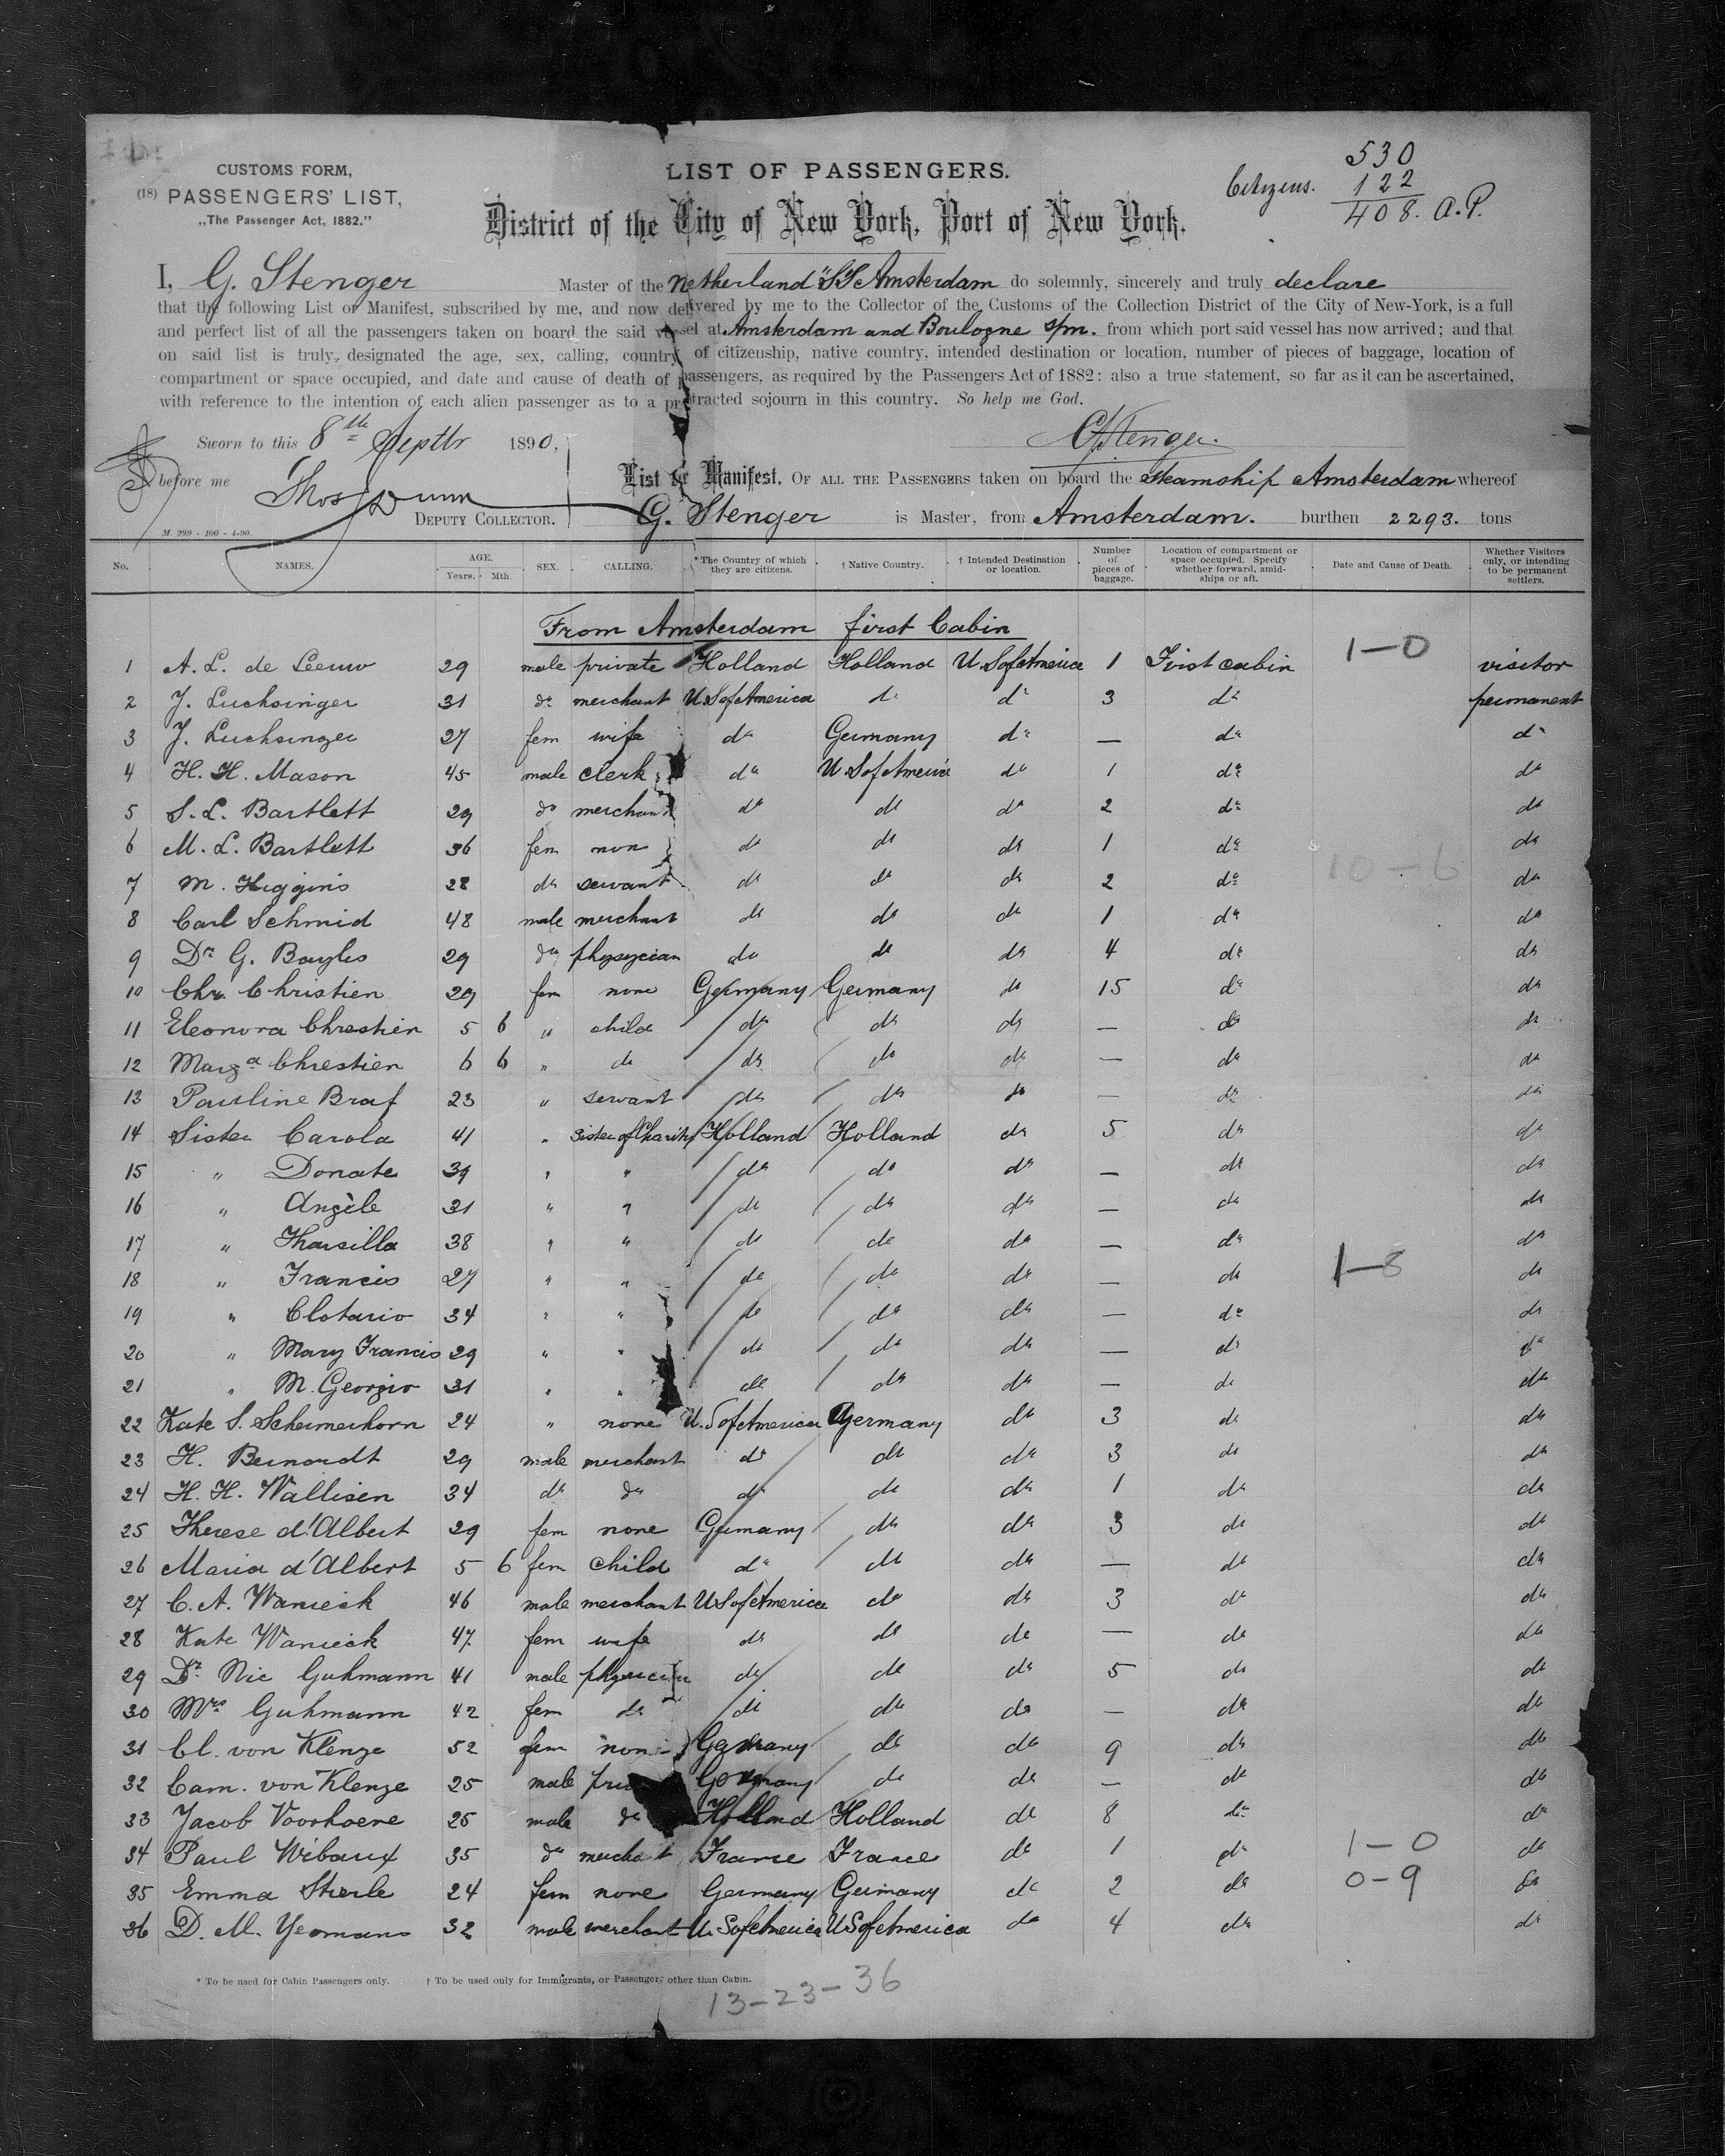 CUSTOMS FORM,
(18) PASSENGERS' LIST,
„The Passenger Act, 1882."
LIST OF PASSENGERS.
District of the City of New York, Port of New York.
530
Citizens. 122
408. A.P.
I, G. Stenger Master of the Netherland "SS Amsterdam do solemnly, sincerely and truly declare
that the following List or Manifest, subscribed by me, and now delivered by me to the Collector of the Customs of the Collection District of the City of New-York, is a full
and perfect list of all the passengers taken on board the said vessel at Amsterdam and Boulogne s/m. from which port said vessel has now arrived; and that
on said list is truly designated the age, sex, calling, country of citizenship, native country, intended destination or location, number of pieces of baggage, location of
compartment or space occupied, and date and cause of death of passengers, as required by the Passengers Act of 1882: also a true statement, so far as it can be ascertained,
with reference to the intention of each alien passenger as to a protracted sojourn in this country. So help me God.
Sworn to this 8th Septbr 1890,
GStenger.
before me Thos Dunn
DEPUTY COLLECTOR.
M. 299 - 100 - 4-90.
List or Manifest, OF ALL THE PASSENGERS taken on board the Steamship Amsterdam whereof
G. Stenger is Master, from Amsterdam. burthen 2293. tons
No. NAMES. AGE. Years. Mth. SEX. CALLING. * The Country of which they are citizens. † Native Country. † Intended Destination or location. Number of pieces of baggage. Location of compartment or space occupied. Specify whether forward, amidships or aft. Date and Cause of Death. Whether Visitors only, or intending to be permanent settlers.
From Amsterdam first Cabin
1 A. L. de Leeuw 29 male private Holland Holland U.S of America 1 First cabin 1-0 visitor
2 J. Luchsinger 31 do merchant U.S of America do do 3 do permanent
3 J. Luchsinger 27 fem wife do Germany do — do do
4 H. H. Mason 45 male clerk do U.S of America do 1 do do
5 S. L. Bartlett 29 do merchant do do do 2 do do
6 M. L. Bartlett 36 fem non do do do 1 do do
10-6
7 M. Higgins 28 do servant do do do 2 do do
8 Carl Schmid 48 male merchant do do do 1 do do
9 Dr G. Bayles 29 do physycian do do do 4 do do
10 Chr. Christien 29 fem none Germany Germany do 15 do do
11 Eleonora Chrestien 5 6 " child do do do — do do
12 Marga Chrestien 6 6 " do do do do — do do
13 Pauline Braf 23 " servant do do do — do do
14 Sister Carola 41 " Sister of Charity Holland Holland do 5 do do
15 " Donate 39 " " do do do — do do
16 " Angèle 31 " " do do do — do do
17 " Tharsilla 38 " " do do do — do do
18 " Francis 27 " " do do do — do 1-8 do
19 " Clotario 34 " " do do do — do do
20 " Mary Francis 29 " " do do do — do do
21 " M. Georgio 31 " " do do do — do do
22 Kate S. Schermerhorn 24 " none U.S of America Germany do 3 do do
23 H. Bernardt 29 male merchant do do do 3 do do
24 H. H. Wallisen 34 do do do do do 1 do do
25 Therese d'Albert 29 fem none Germany do do 3 do do
26 Maria d'Albert 5 6 fem child do do do — do do
27 C. A. Wanieck 46 male merchant U.S of America do do 3 do do
28 Kate Wanieck 47 fem wife do do do — do do
29 Dr Nic Guhmann 41 male physician do do do 5 do do
30 Mrs Guhmann 42 fem do do do do — do do
31 Cl. von Klenze 52 fem non Germany do do 9 do do
32 Cam. von Klenze 25 male Germany do do — do do
33 Jacob Voorhoeve 25 male do Holland Holland do 8 do do
34 Paul Wibaux 35 do merchant France France do 1 do 1-0 do
35 Emma Stierle 24 fem none Germany Germany do 2 do 0-9 do
36 D. M. Yeomans 32 male merchant U.S of America U.S of America do 4 do do
* To be used for Cabin Passengers only. † To be used only for Immigrants, or Passengers other than Cabin.
13-23-36